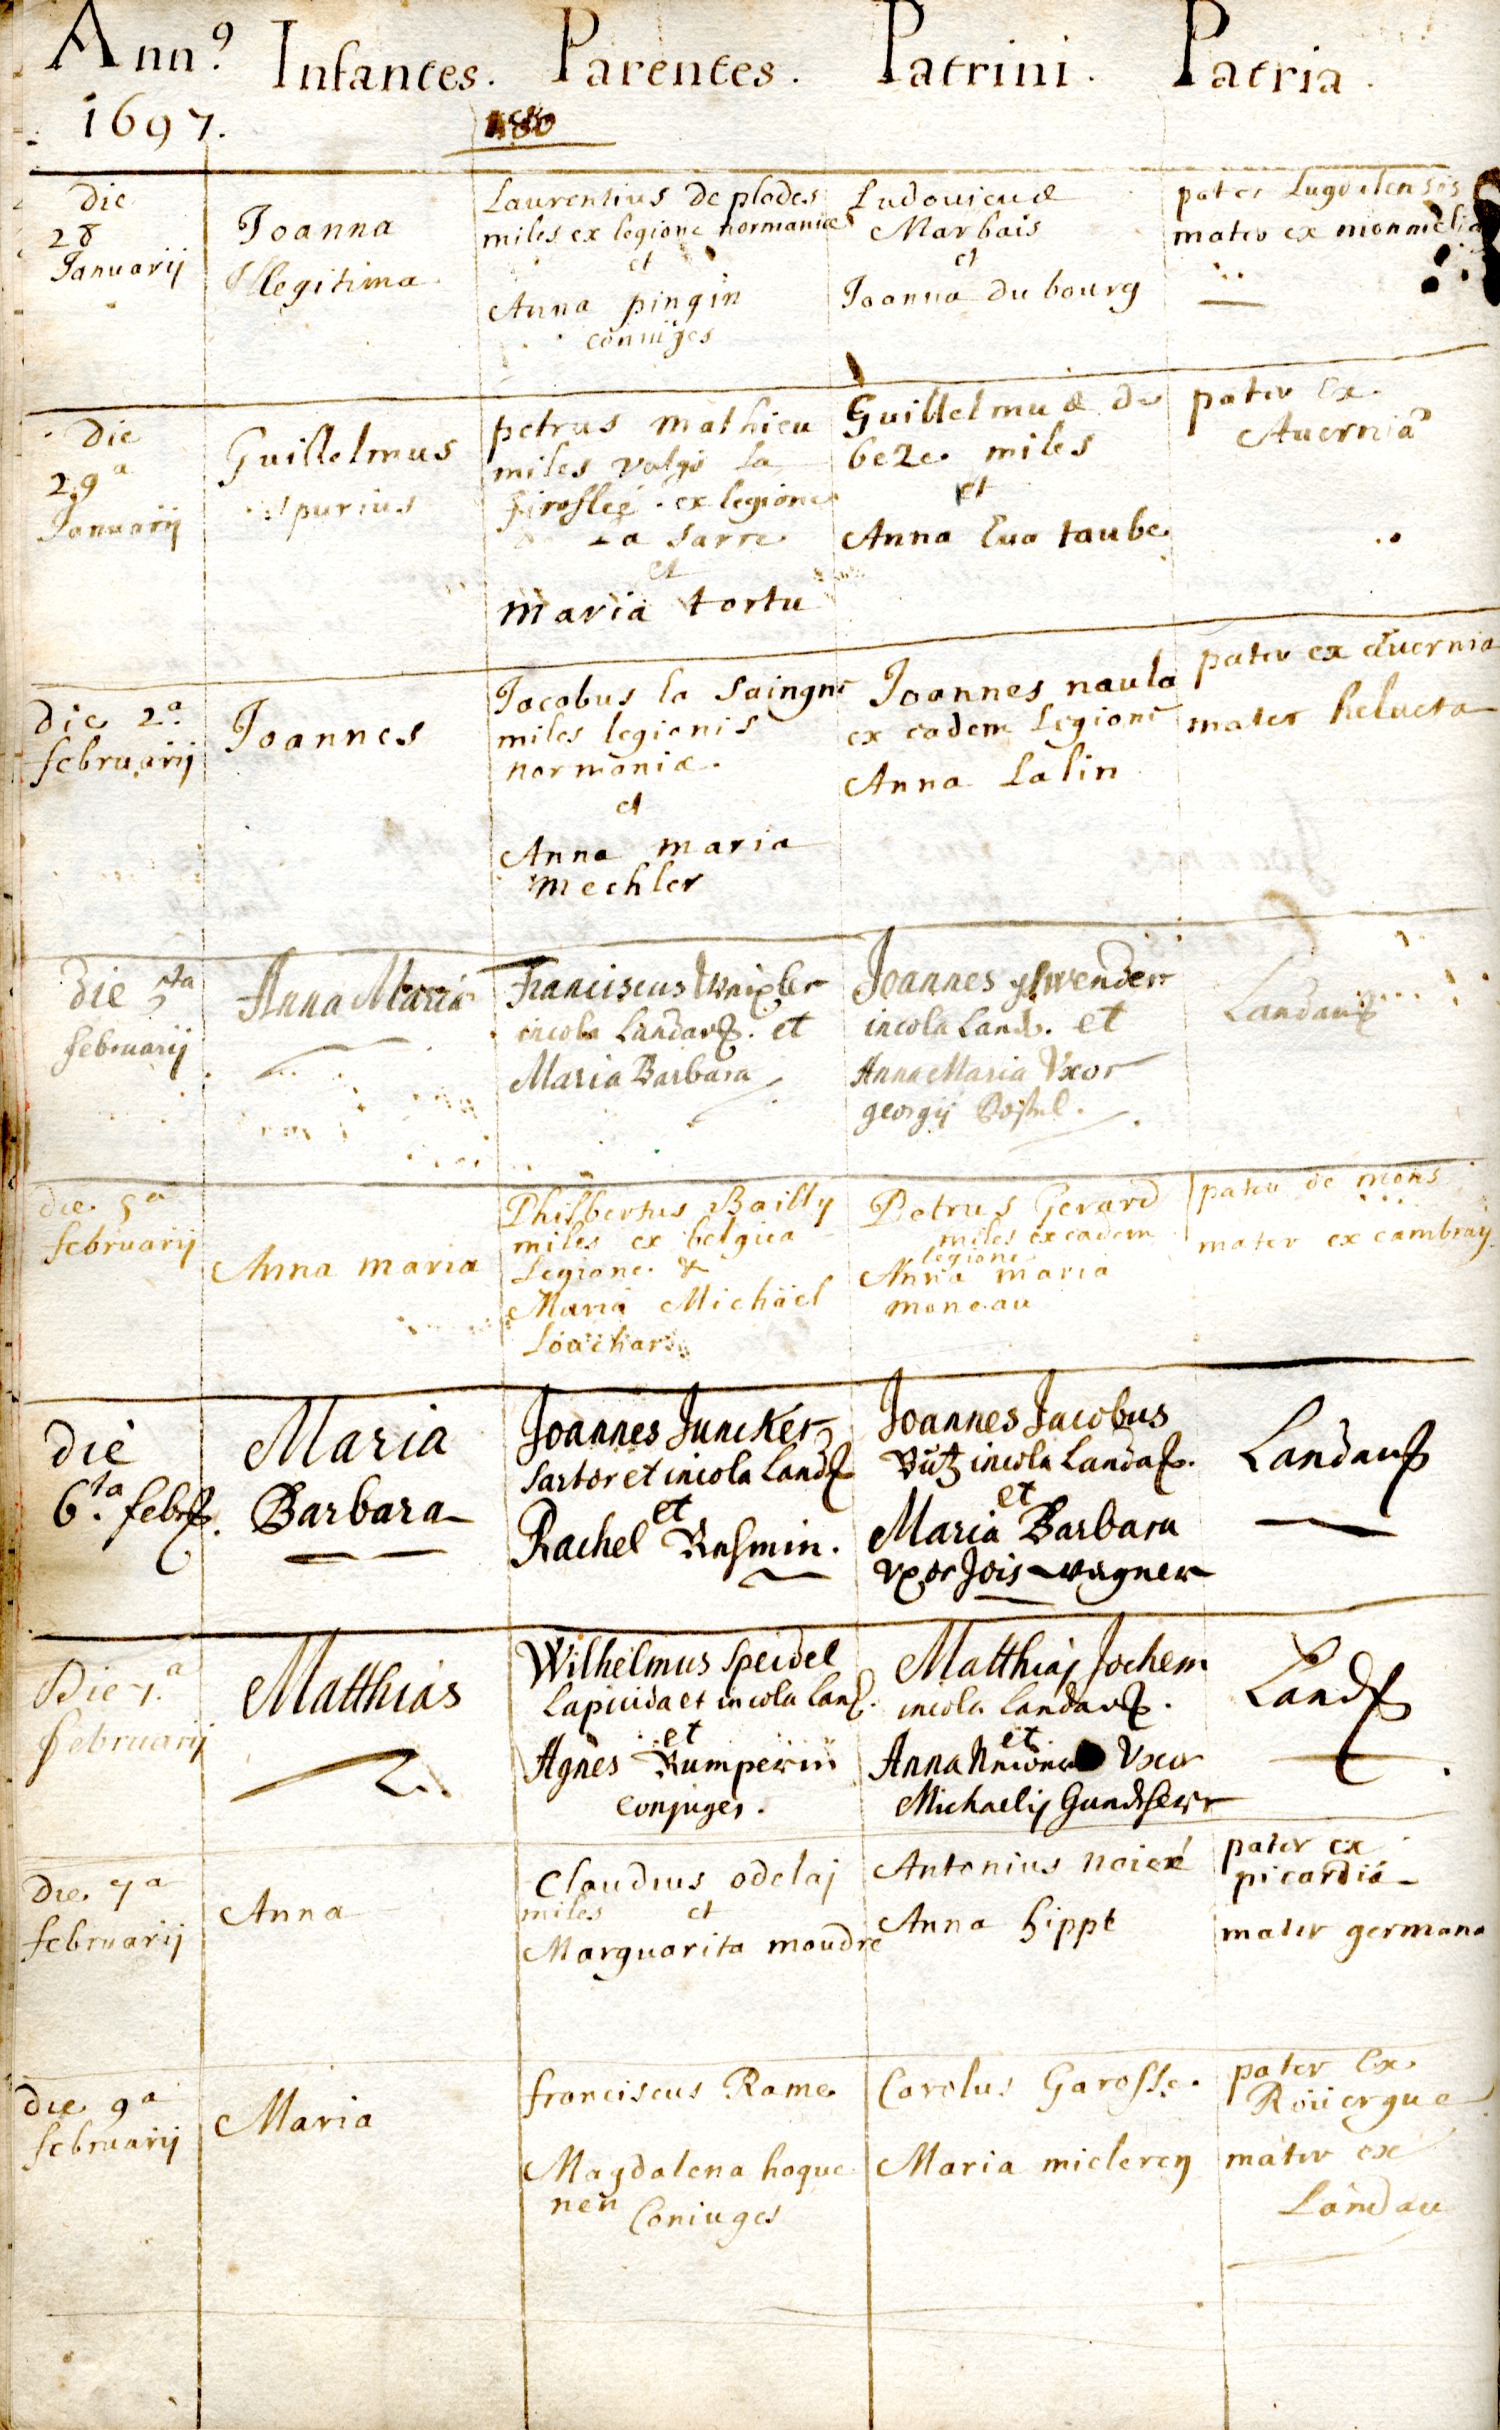 Ann⁹. Infantes. Parentes. Patrini. Patria.
1697.
Die
28
Januarij
Joanna
Legitima
Laurentius De plodes
miles ex legione normaniæ
et
Anna pingin
coniuges
Ludouicus
Marbais
et
Joanna du bourg
pater Lugdulensis
mater ex
Die
29ª
Januarij
Guillelmus
spurius
petrus mathieu
miles vulgo La
giroflee. ex legione
La Sarre
et
maria tortu
Guillelmus de
beze miles
et
Anna Eua taube
pater ex
Auernia
Die 2ª
februarij
Joannes
Jacobus la Saingne
miles legionis
normaniæ.
et
Anna maria
mechler
Joannes naula
ex eadem Legione
Anna Lalin
pater ex auernia
mater helueta
Die 5ta
februarij
Anna Maria
Franciscus
incola Landav. et
Maria Barbara
Joannes
incola Land. et
Anna Maria Vxor
georgij
Landav
die 5ª
februarij
Anna maria
Philbertus Bailly
miles ex belgica
Legione &
Maria Michäel
Petrus Gerard
miles ex eadem
legione
Anna maria
moneau
pater de mons
mater ex cambray
Die
6ta. febr.
Maria
Barbara
Joannes Juncker
Sartor et incola Land
et
Rachel
Joannes Jacobus
Butz incola Landa.
et
Maria Barbara
vxor Jois wagner
Landau
Die 7.ª
februarij
Matthias
Wilhelmus Speidel
Lapicida et incola Land.
et
Agnes Rumperin
Conjuges.
Matthias Jochem
incola Landav.
et
Anna Vxor
Michaelis
Land
Die 7ª
februarij
Anna
Claudius odelaj
miles et
Marguarita moudre
Antonius noiré
Anna hippt
pater ex
picardia
mater germana
Die 9ª
februarij
Maria
franciscus Rame
Magdalena hoque
nen Coniuges
Carolus Garosse.
Maria miclercy
pater ex
Roüergue
mater ex
Landau